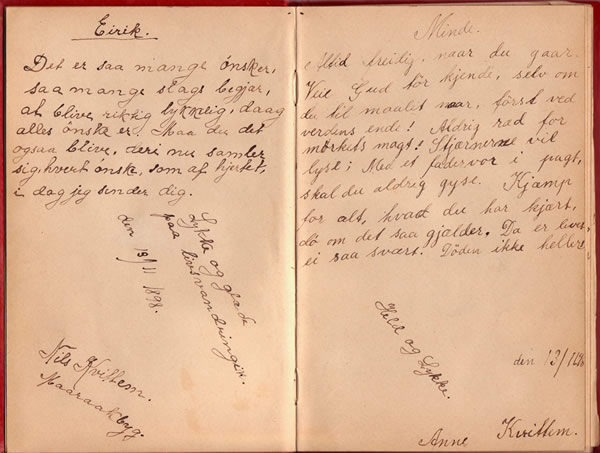 Eirik.
Det er saa mange ønsker,
saa mange slags begjær,
at blive riktig lykkelig, daag
alles ønske er. Maa du det
ogsaa blive, deri nu samler
sig, hvert ønsk, som af hjertet,
i dag jeg sender dig.
Lykke og glæde
paa livsvandringen.
den 13/11 1898.
Nils Kvittem.
Maaraakbyg.
Minde.
Altid freidig, naar du gaar.
Veie Gud tør kjende, selv om
du til maalet naar, først ved
verdens ende! Aldrig ræd for
mørkets magt! Stjærnerne vil
lyse; Med et fadervor i pagt,
skal du aldrig gyse. Kjæmp
for alt, hvad du har kjært,
dø om det saa gjælder. Da er livet
ei saa svært. Døden ikke hellere
Held og Lykke.
den 13/11
Anne Kvittem.